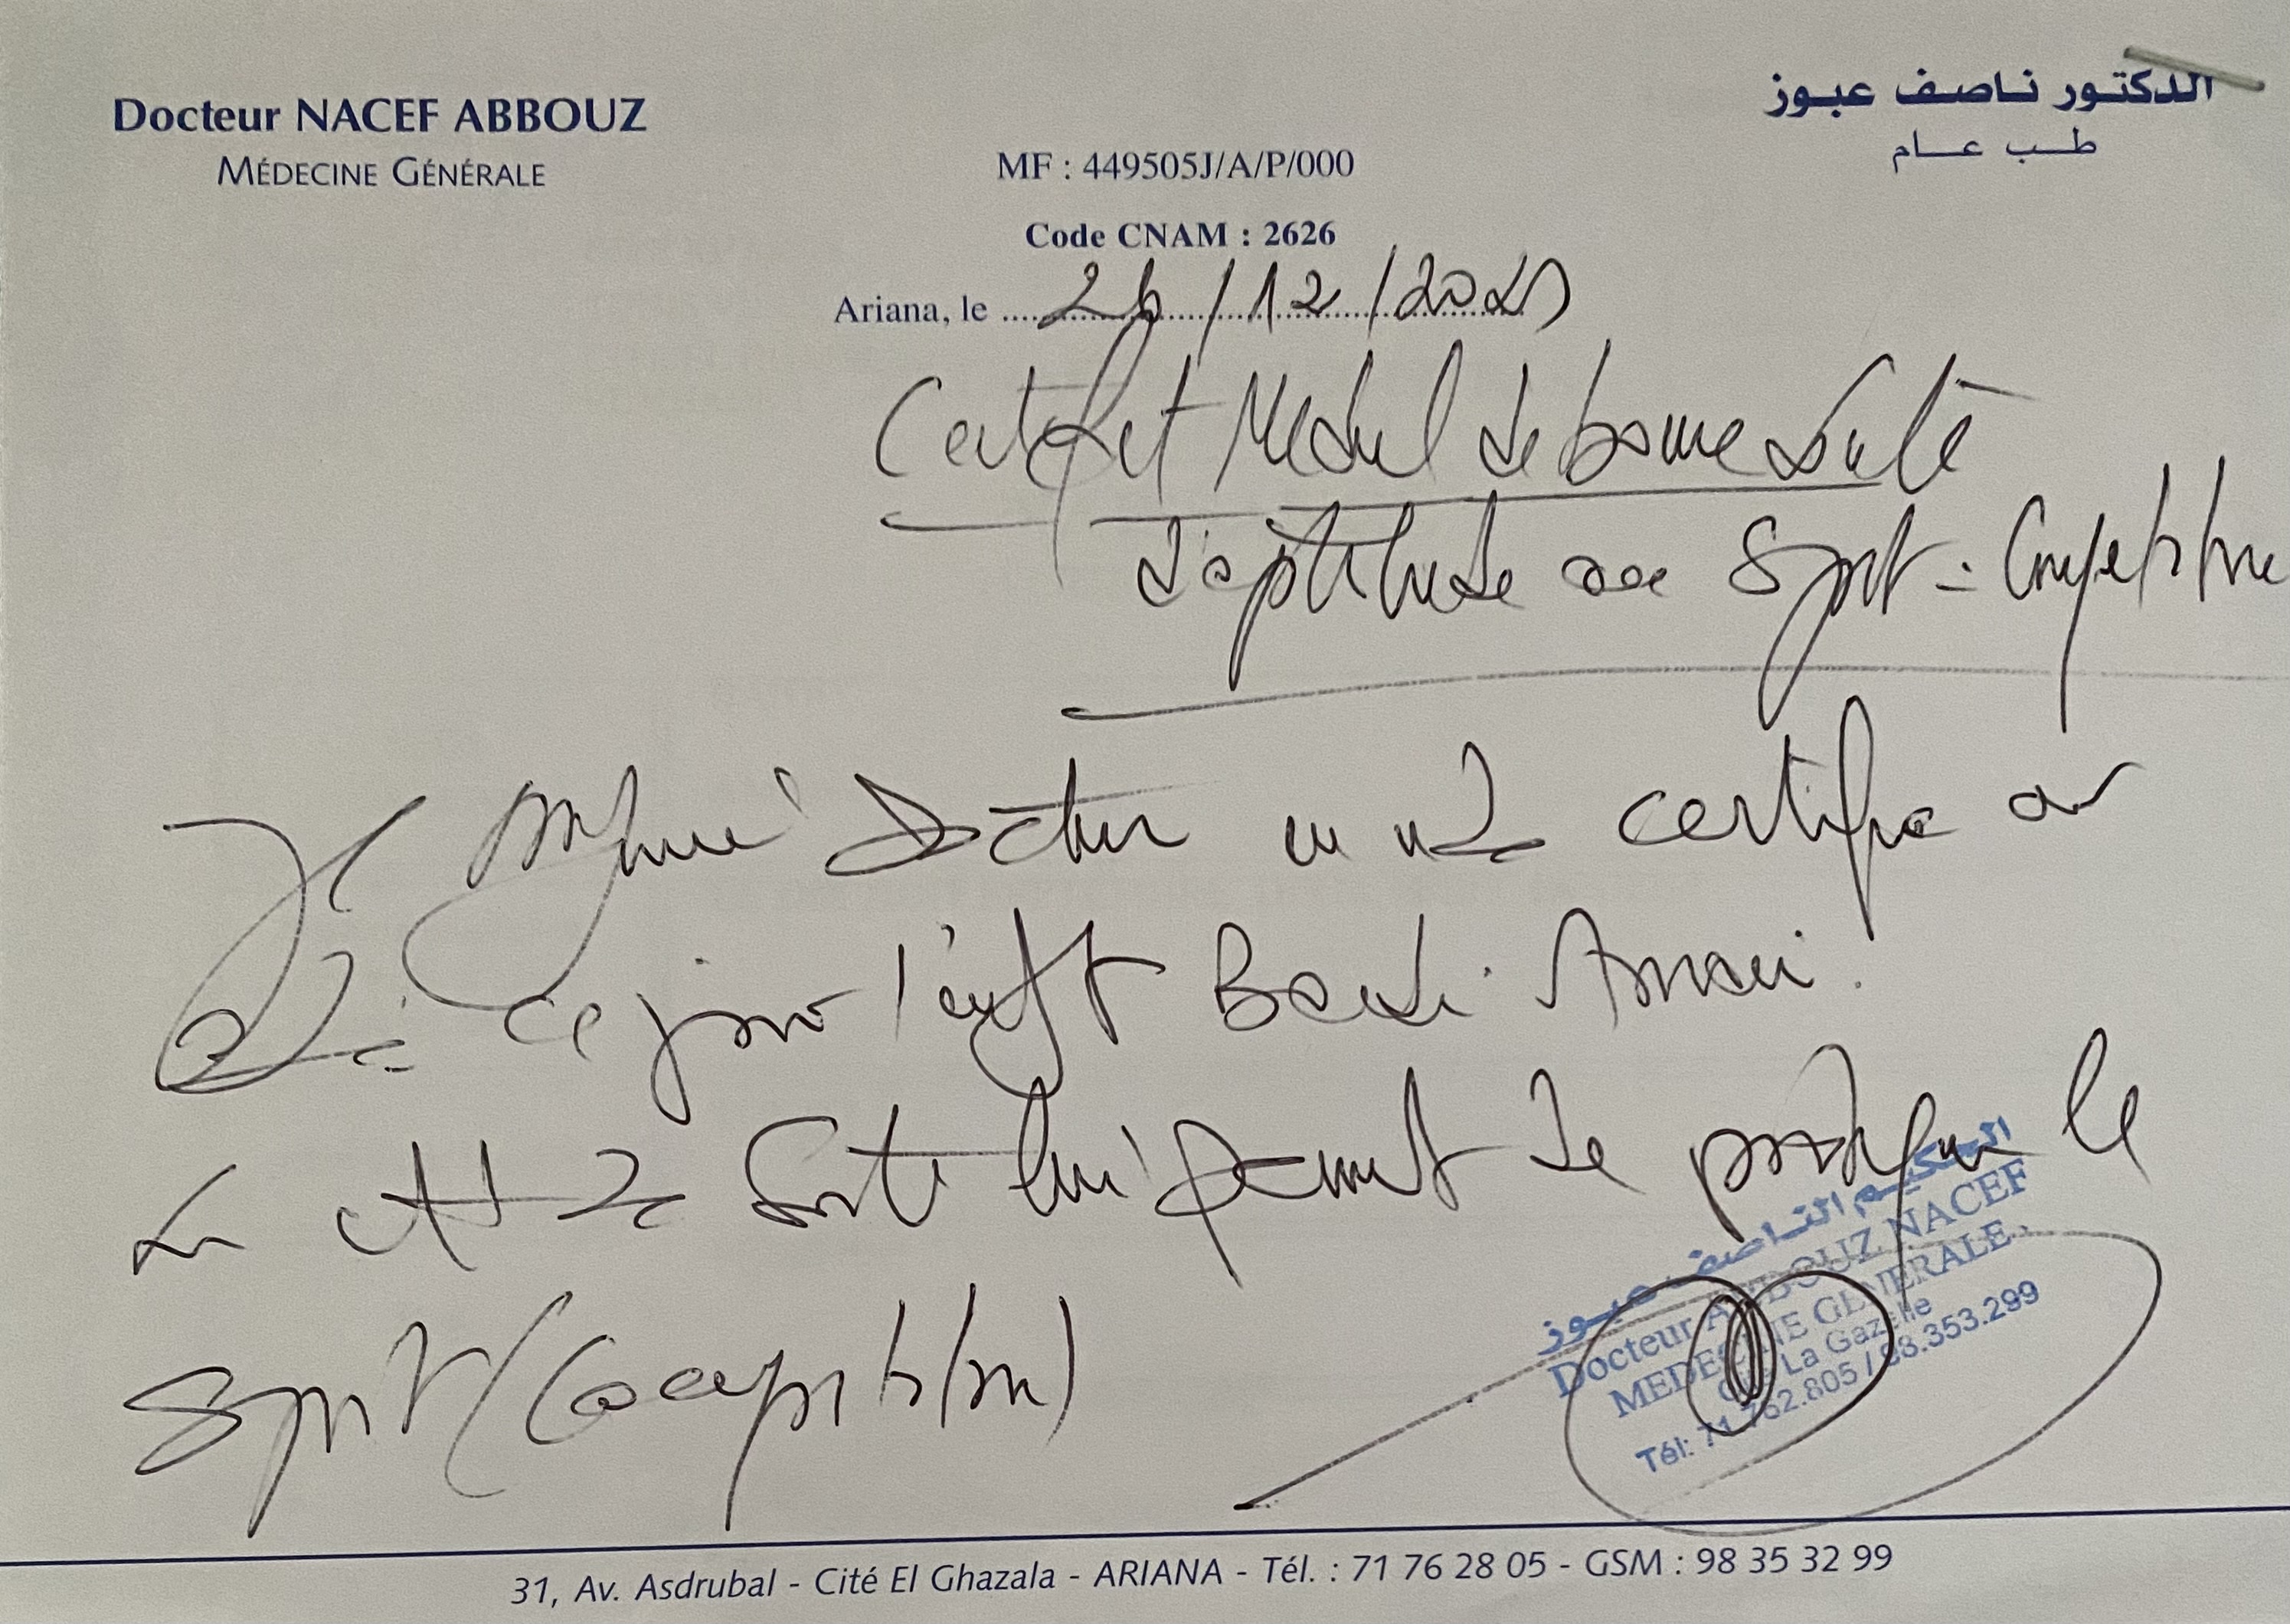 Docteur NACEF ABBOUZ
MÉDECINE GÉNÉRALE
الدكتور ناصف عبوز
طب عام
MF : 449505J/A/P/000
Code CNAM : 2626
Ariana, le 26/12/20
Certificat Médical de bonne Santé
d'aptitude au Sport - Compétition
Je soussigné Docteur en Méde certifie avoir
ce jour l'enfant
Son état de Santé lui permet de pratiquer le
Sport (Compétition)
الحكيم الناصف عبوز
Docteur ABBOUZ NACEF
MEDECINE GENERALE
Cité La Gazelle
Tél: 71.762.805 / 98.353.299
31, Av. Asdrubal - Cité El Ghazala - ARIANA - Tél. : 71 76 28 05 - GSM : 98 35 32 99